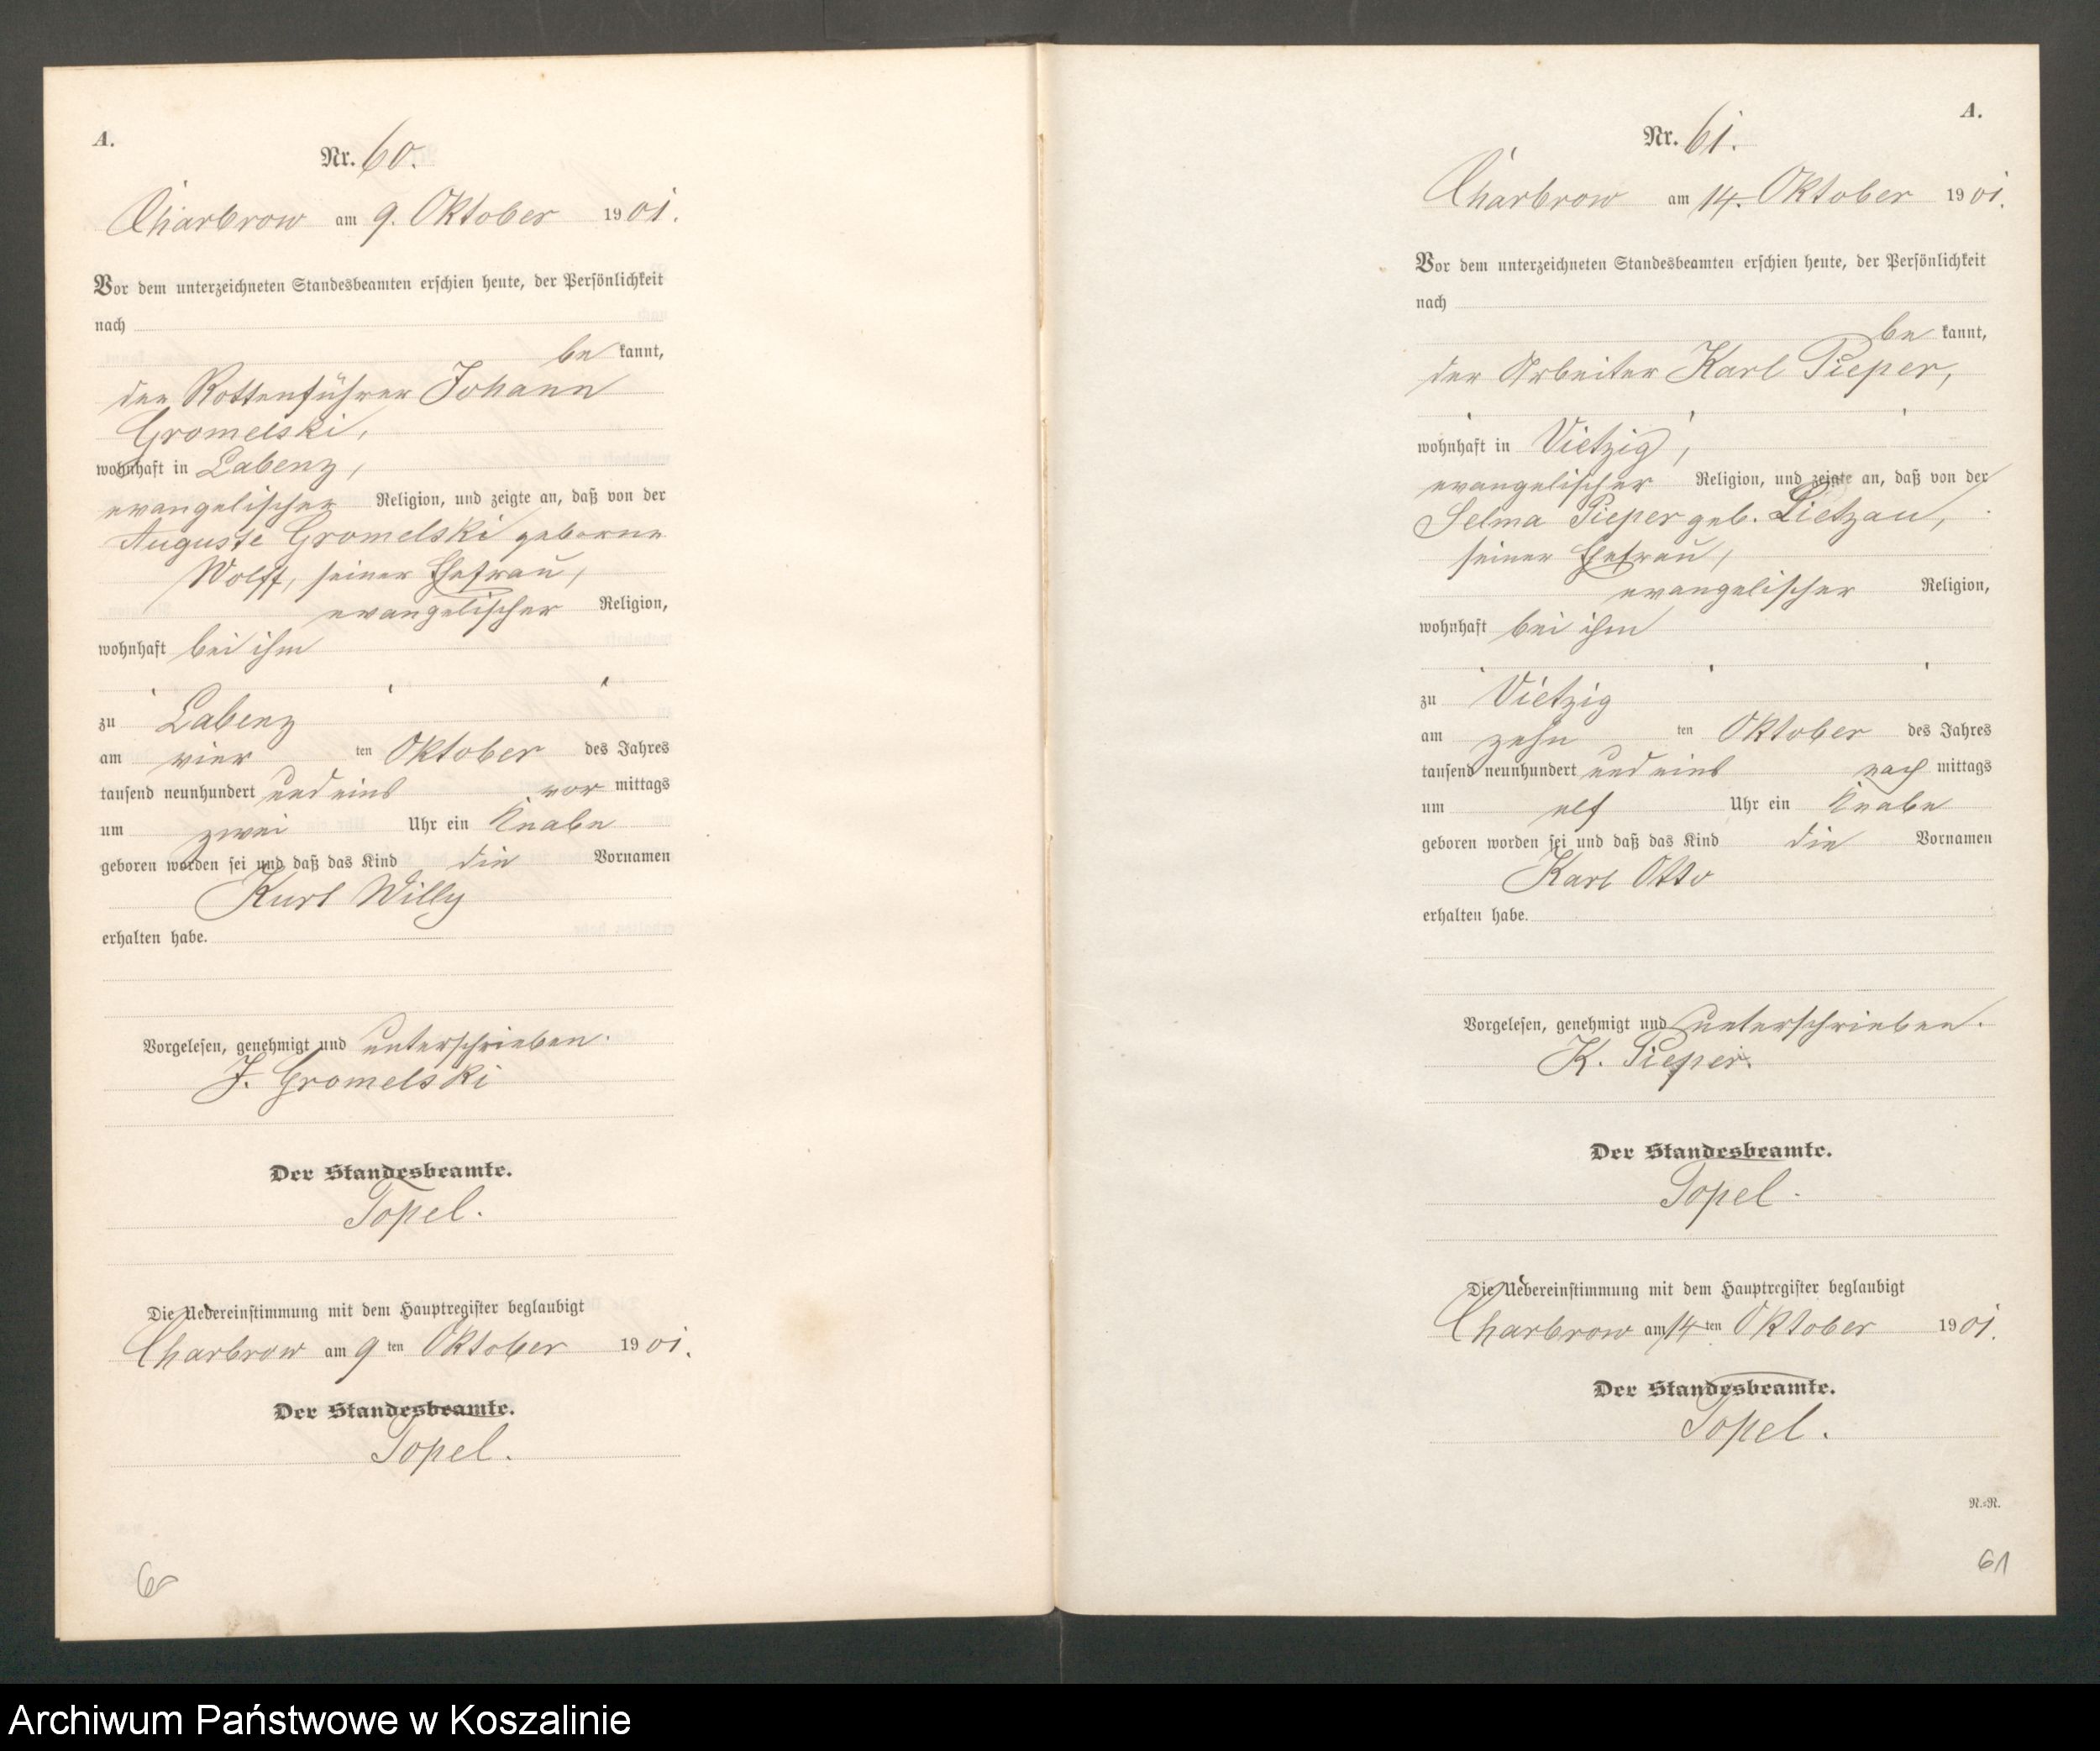 A.
Nr. 60.
Charbrow am 9. Oktober 1901.
Vor dem unterzeichneten Standesbeamten erschien heute, der Persönlichkeit
nach
be kannt,
der Rottenführer Johann
Gromelski,
wohnhaft in Labenz,
evangelischer Religion, und zeigte an, daß von der
Auguste Gromelski geborne
Wolff, seiner Ehefrau,
evangelischer Religion,
wohnhaft bei ihm
zu Labenz
am vier ten Oktober des Jahres
tausend neunhundert und eins vor mittags
um zwei Uhr ein Knabe
geboren worden sei und daß das Kind die Vornamen
Kurt Willy
erhalten habe.
Vorgelesen, genehmigt und unterschrieben.
J. Gromelski
Der Standesbeamte.
Topel.
Die Uebereinstimmung mit dem Hauptregister beglaubigt
Charbrow am 9 ten Oktober 1901.
Der Standesbeamte.
Topel.
60
A.
Nr. 61.
Charbrow am 14. Oktober 1901.
Vor dem unterzeichneten Standesbeamten erschien heute, der Persönlichkeit
nach
be kannt,
der Arbeiter Karl Pieper,
wohnhaft in Vietzig,
evangelischer Religion, und zeigte an, daß von der
Selma Pieper geb. Lietzau,
seiner Ehefrau,
evangelischer Religion,
wohnhaft bei ihm
zu Vietzig
am zehn ten Oktober des Jahres
tausend neunhundert und eins nach mittags
um elf Uhr ein Knabe
geboren worden sei und daß das Kind die Vornamen
Karl Otto
erhalten habe.
Vorgelesen, genehmigt und unterschrieben.
K. Pieper.
Der Standesbeamte.
Topel.
Die Uebereinstimmung mit dem Hauptregister beglaubigt
Charbrow am 14 ten Oktober 1901.
Der Standesbeamte.
Topel.
R.=R.
61
Archiwum Państwowe w Koszalinie